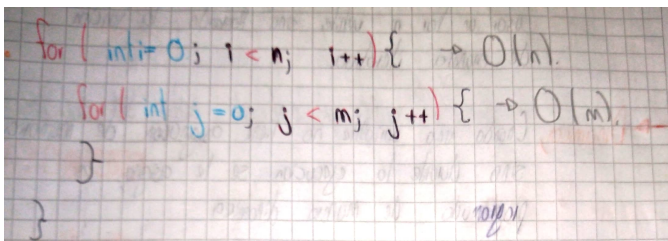 for ( int i = 0; i < n; i++) { → O(n).
for ( int j = 0; j < m; j++) { → O(m).
}
}